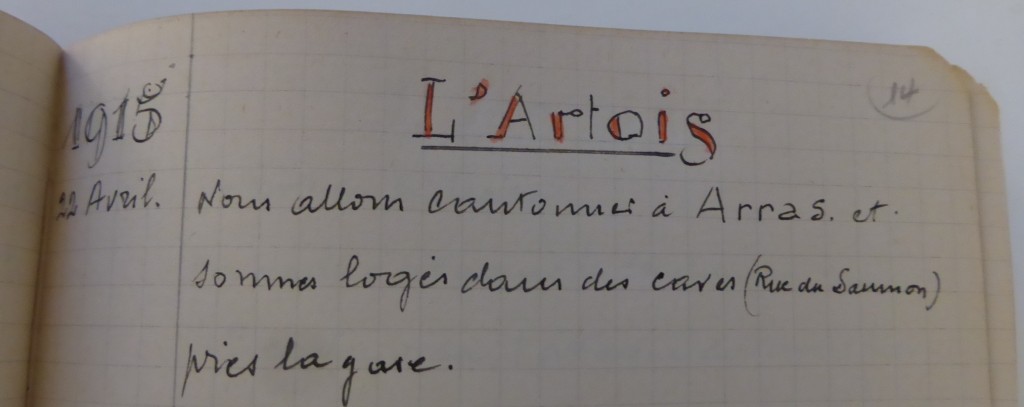 14
1915
L'Artois
22 Avril. Nous allons cantonner à Arras. et
sommes logés dans des caves (Rue du Saumon)
près la gare.